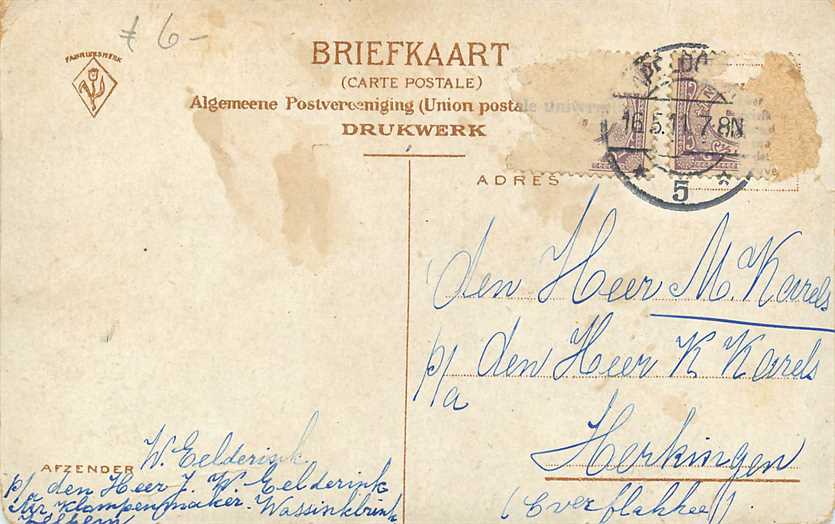 f 6-
FABRIEKSMERK
BRIEFKAART
(CARTE POSTALE)
Algemeene Postvereeniging (Union postale universelle)
DRUKWERK
16.5.11.7-8N
5
ADRES
den Heer M. Karels
p/a den Heer K Karels
Herkingen
(Overflakkee)
AFZENDER W. Eelderink
p/a den Heer J. W Eelderink
Klompenmaker. Wassinkbrink